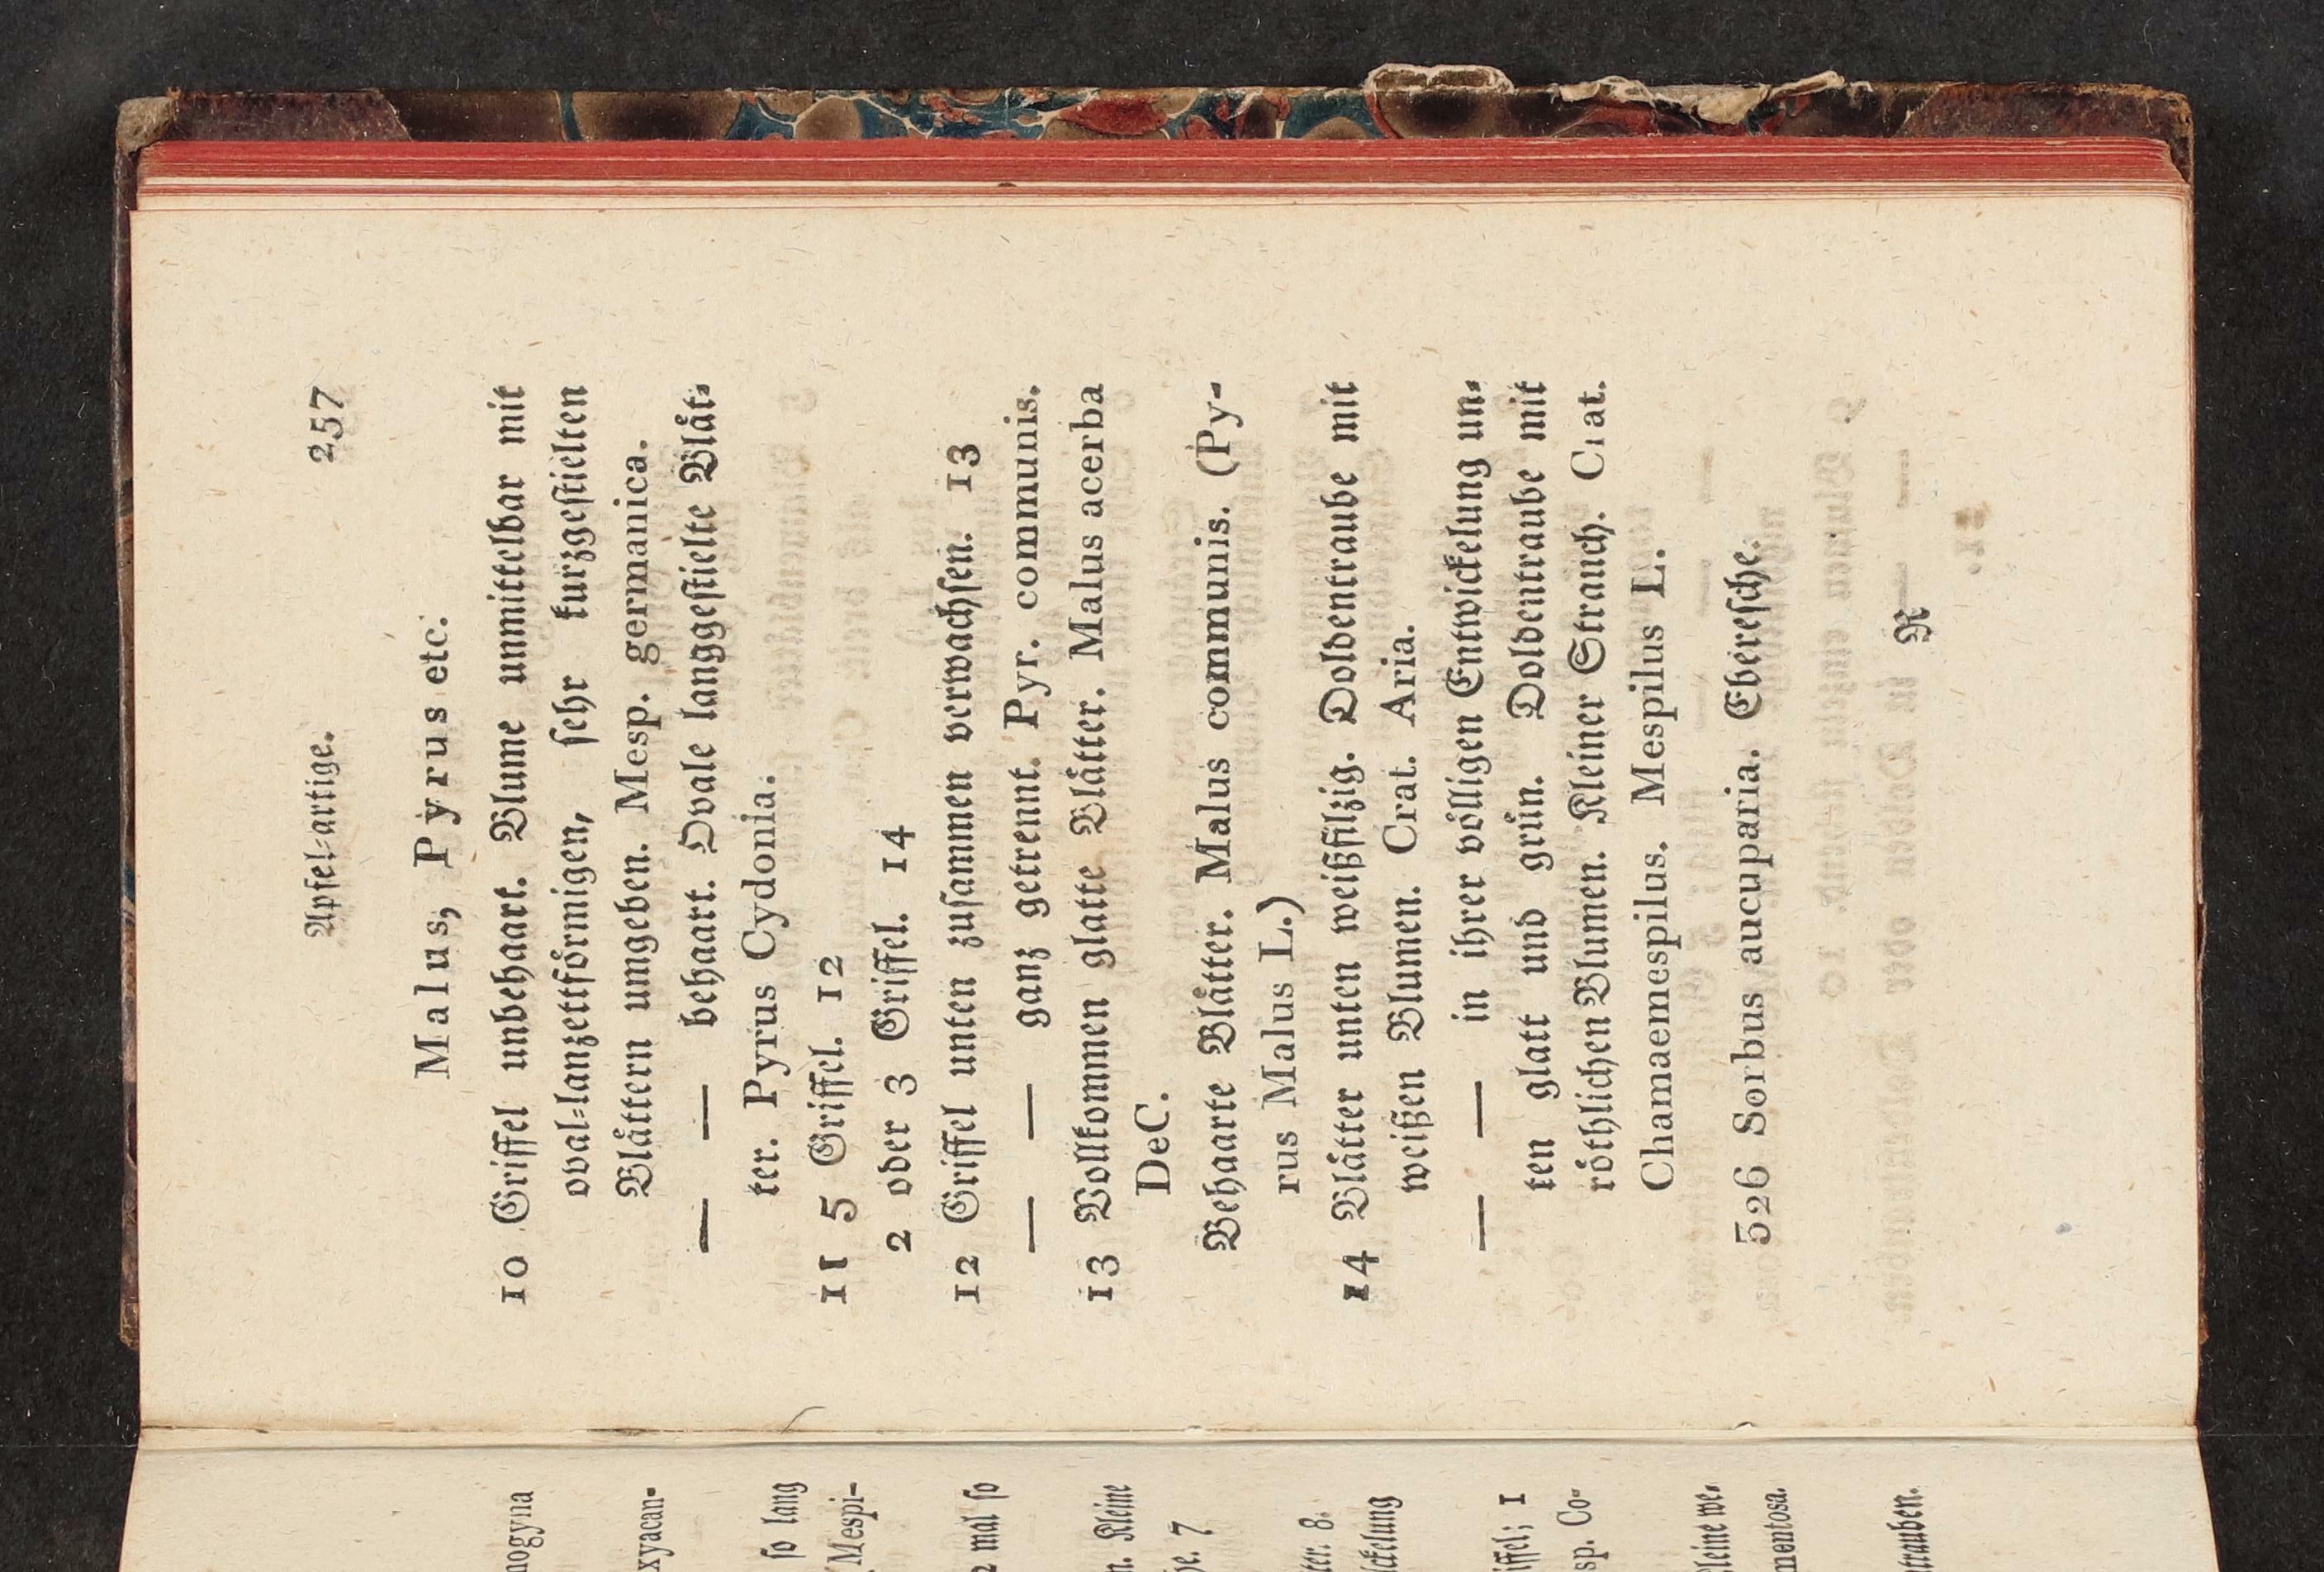 nogyna
xyacan-
so lang
(Mespi-
2 mal so
n. Kleine
be. 7
tter. 8.
ickelung
iffel; 1
sp. Co-
leine we-
mentosa.
ntrauben.
Apfel-artige. 257
Malus, Pyrus etc.
10 Griffel unbehaart. Blume unmittelbar mit
oval-lanzettförmigen, sehr kurzgestielten
Blättern umgeben. Mesp. germanica.
— — behaart. Ovale langgestielte Blät-
ter. Pyrus Cydonia.
11 5 Griffel. 12
2 oder 3 Griffel. 14
12 Griffel unten zusammen verwachsen. 13
— — ganz getrennt. Pyr. communis.
13 Vollkommen glatte Blätter. Malus acerba
DeC.
Behaarte Blätter. Malus communis. (Py-
rus Malus L.)
14 Blätter unten weißfilzig. Doldentraube mit
weißen Blumen. Crat. Aria.
— — in ihrer völligen Entwickelung un-
ten glatt und grün. Doldentraube mit
röthlichen Blumen. Kleiner Strauch. Crat.
Chamaemespilus. Mespilus L.
526 Sorbus aucuparia. Eberesche.
R